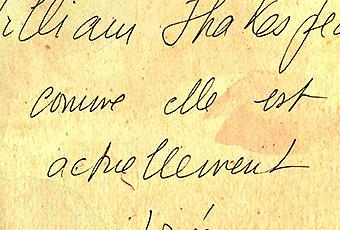 William Shakespea
comme elle est
actuellement